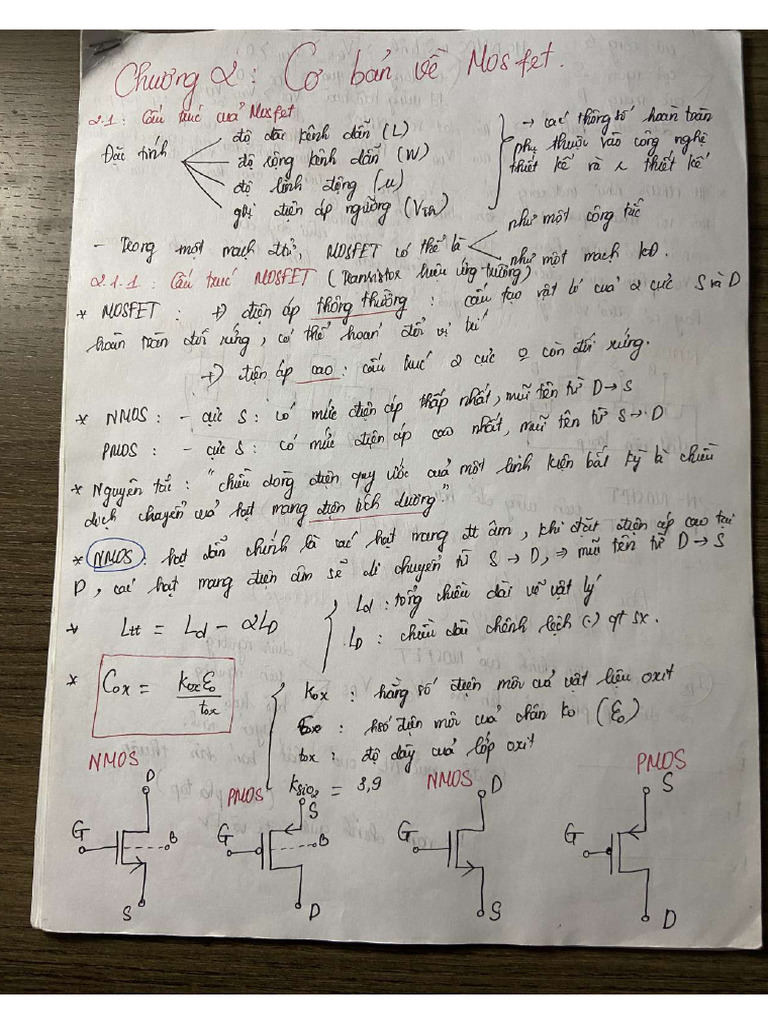 Chương 2: Cơ bản về Mosfet.
2.1: Cấu trúc của Mosfet
Đặc tính
độ dài kênh dẫn (L)
độ rộng kênh dẫn (W)
độ linh động (μ)
giá điện áp ngưỡng (VTH)
→ các thông số hoàn toàn
phụ thuộc vào công nghệ
thiết kế và thiết kế
- Trong một mạch MOSFET có thể là
như một công tắc
như một mạch KĐ.
2.1.1: Cấu trúc MOSFET (Transistor hiệu ứng trường)
* MOSFET: +) điện áp thông thường: cấu tạo vật lý của 2 cực S và D
hoàn toàn đối xứng, có thể hoán đổi vị trí
+) điện áp cao: cấu trúc 2 cực o còn đối xứng.
* NMOS: - cực S: có mức điện áp thấp nhất, mũi tên từ D → S
PMOS: - cực S: có mức điện áp cao nhất, mũi tên từ S → D
* Nguyên tắc: "chiều dòng điện quy ước của một linh kiện bất kỳ là chiều
dịch chuyển của hạt mang điện tích dương"
* NMOS: hạt dẫn chính là các hạt mang đt âm, khi đặt điện áp cao tại
D, các hạt mang điện âm sẽ di chuyển từ S → D, ⇒ mũi tên từ D → S
* Ltt = Ld - 2LD
Ld: tổng chiều dài vẽ vật lý
LD: chiều dài chênh lệch (.) qt sx.
* Cox = koxε0 / tox
kox: hằng số điện môi của vật liệu oxit
hsố điện môi của chân ko (ε0)
tox: độ dày của lớp oxit
kSiO2 = 3,9
NMOS PMOS NMOS PMOS
D S D S
G B G B G G
S D S D